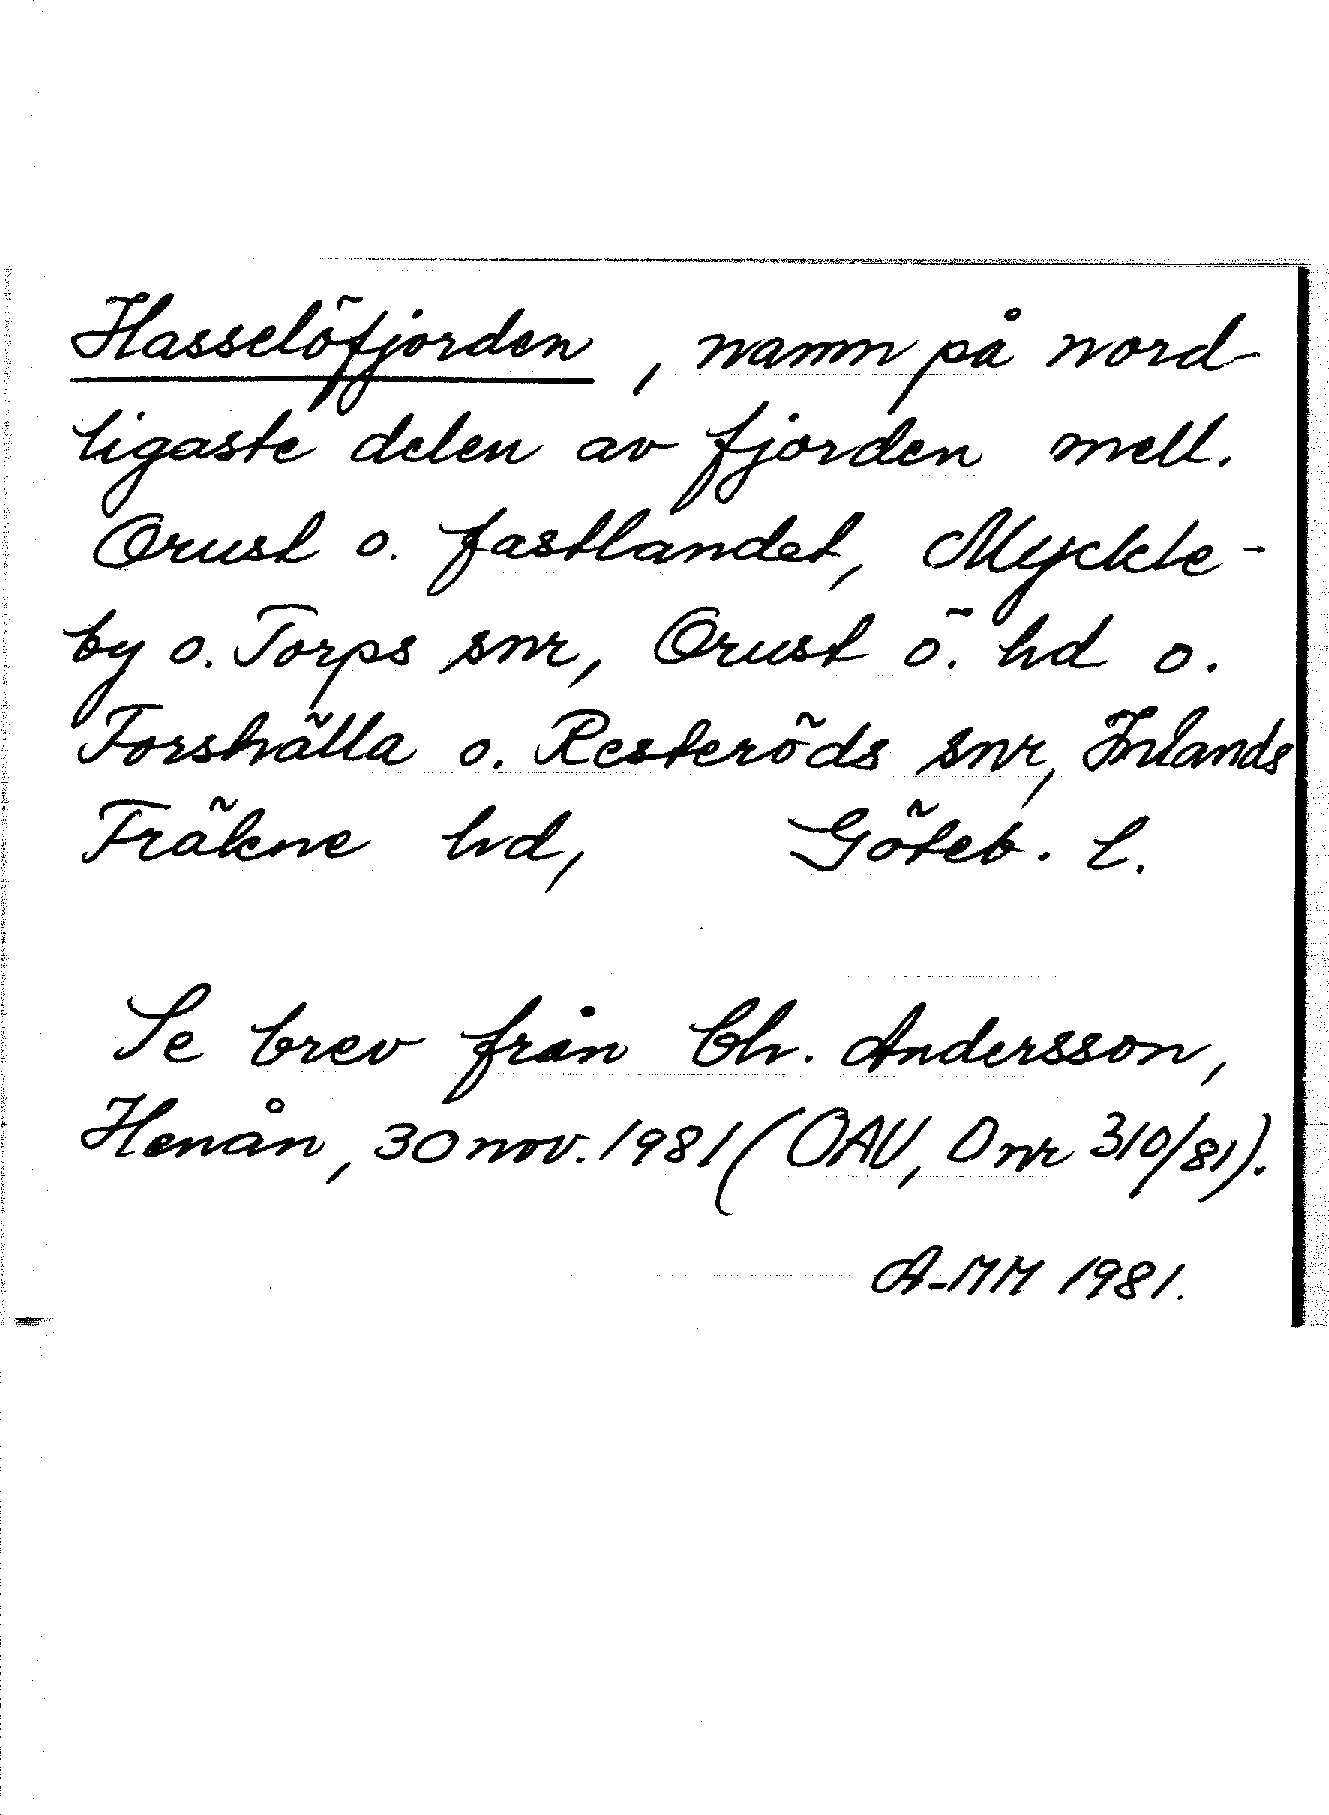 Hasselöfjorden, namn på nord-
ligaste delen av fjorden mell.
Orust o. fastlandet, Myckle-
by o. Torps snr, Orust ö. hd o.
Forshälla o. Resteröds snr, Inlands
Fräkne hd, Göteb. l.
Se brev från Ch. Andersson,
Henån, 30 nov. 1981 (OAU, Dnr 310/81).
A-MM 1981.